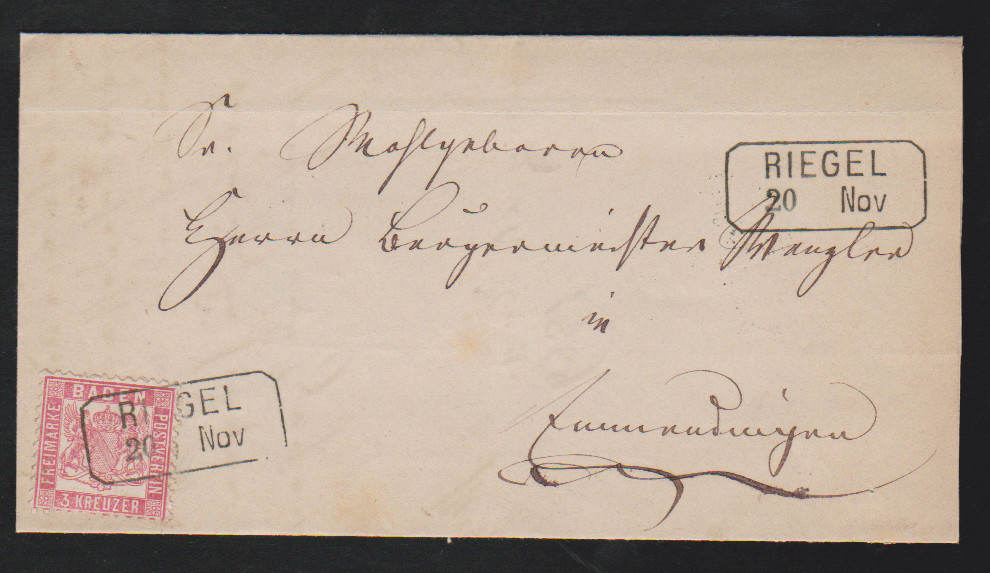 Sr. Wohlgeboren
RIEGEL
20 Nov
Herrn Bürgermeister Wenzler
in
Emmendingen
BADEN
FREIMARKE
POSTVEREIN
3 KREUZER
RIEGEL
20 Nov